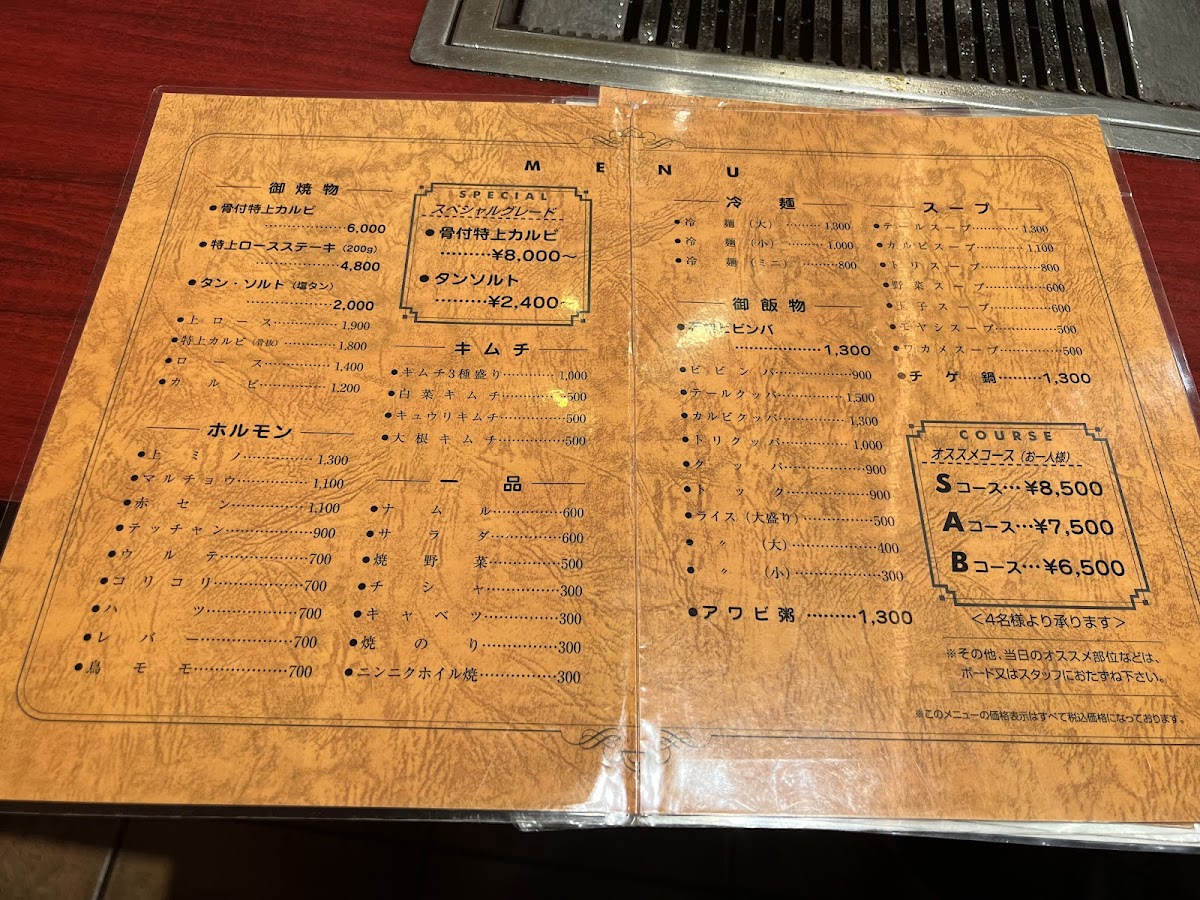 MENU
御焼物
●骨付特上カルビ
………………6,000
●特上ロースステーキ（200g）
………………4,800
●タン・ソルト（塩タン）
………………2,000
●上ロース……………1,900
●特上カルビ（骨抜）…………1,800
●ロース……………1,400
●カルビ……………1,200
ホルモン
●上ミノ……………1,300
●マルチョウ……………1,100
●ホセン……………1,100
●テッチャン……………900
●ウルテ……………700
●コリコリ……………700
●ハツ……………700
●レバー……………700
●鳥モモ……………700
SPECIAL
スペシャルグレード
●骨付特上カルビ
………¥8,000～
●タンソルト
………¥2,400～
キムチ
●キムチ3種盛り…………1,000
●白菜キムチ…………500
●キュウリキムチ…………500
●大根キムチ…………500
一品
●ナムル……………600
●サラダ……………600
●焼野菜……………500
●チシャ……………300
●キャベツ……………300
●焼のり……………300
●ニンニクホイル焼…………300
冷麺
●冷麺（大）………1,300
●冷麺（小）………1,000
●冷麺（ミニ）………800
御飯物
ビビンバ
………………1,300
●ビビンバ…………900
●テールクッパ…………1,500
●カルビクッパ…………1,300
●トリクッパ…………1,000
●クッパ…………900
●トック…………900
●ライス（大盛り）…………500
●〃（大）…………400
●〃（小）…………300
●アワビ粥………1,300
スープ
●テールスープ…………1,300
●カルビスープ…………1,100
●トリスープ…………800
●野菜スープ…………600
●玉子スープ…………600
●モヤシスープ…………500
●ワカメスープ…………500
●チゲ鍋………1,300
COURSE
オススメコース（お一人様）
Sコース…¥8,500
Aコース…¥7,500
Bコース…¥6,500
＜4名様より承ります＞
※その他、当日のオススメ部位などは、
ボード又はスタッフにおたずね下さい。
※このメニューの価格表示はすべて税込価格になっております。